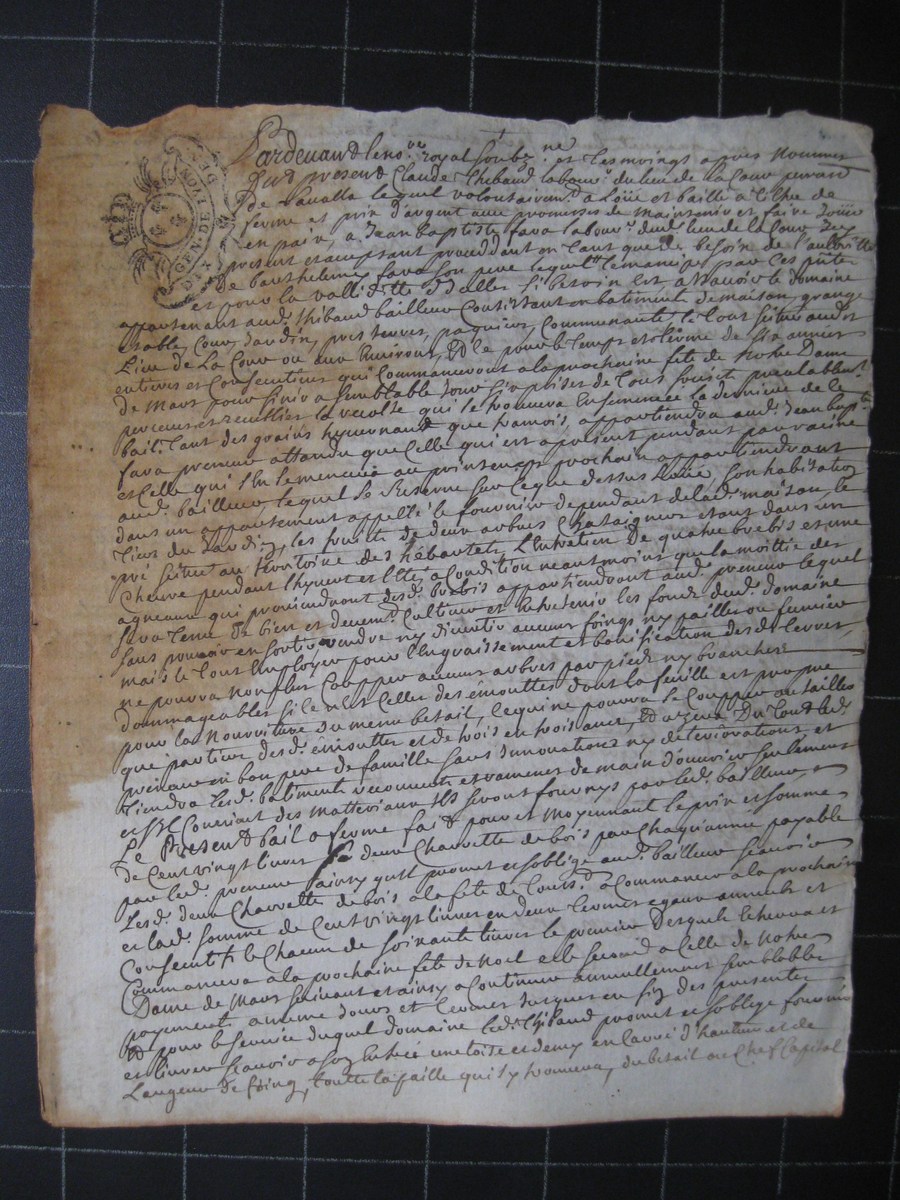 GEN. DE LION DIX DEN
Pardevant le no.re royal soubz.ne et tesmoings apres nommes
fut present Claude Thibaud labour.r du lieu de la Cour parroisse
de Lavalla lequel volontairem.t a loüé et baillé a tiltre de
ferme et prix d'argent aux promesses de maintenir et faire joüir
en paix, a Jean Baptiste fara labour.r dud. lieu de la Cour Icy
present et acceptant proceddant en tant que de besoin de l'authorité
de Barthelemy fara son pere lequel le emancipe par ces pntes
et pour la vallidité d'Icelles si besoin est assavoir le domaine
appartenant aud. Thibaud bailleur Consistant en batiments de maison, grange
etable, Cour, Jardin, prés terres, paquiers, Communauté le tout situé audit
lieu de La Cour ou aux Environs, Et ce pour le temps et terme de six années
entieres et Consecutives qui Commanceront a la prochaine fete de Notre Dame
de Mars pour finir a semblable Jour six prises de tous fruits prealablem.t
perceues et recueillies la recolte qui se trouvera Ensemencée la derniere de ce
bail, tant des grains hyvernaux que tramois, appartiendra aud. Jean bap.te
fara preneur attendu que Celle qui est a present pendant par racine
et Celle qui s'Ensemencera au printemps prochain appartiendront
aud. bailleur, lequel se Reserve sur ce que dessus Loüé son habitation
dans un appartement appellé le fournier dependant de lad. maison, le
tiers du Jardin, les fruits de deux arbres Chataigners etant dans un
pré situé au territoire des hébautes, l'Entretien de quatre brebis et une
Chevre pendant l'hyvert et l'Eté, a Condition neantmoins que la moittié des
agneaux qui proviendront desd. brebis appartiendront aud. preneur lequel
sera tenu de bien et deuem.t Cultiver et Entretenir les fonds dud. domaine
sans pouvoir en sortir vendre ny divertir aucuns foings ny pailles ou fumiers
mais le tout Employer pour l'Engraissement et bonification desd. terres,
ne pourra non plus Coupper aucuns arbres par pieds ny branches
dommageables si ce n'est Celles des émouttes dont la feuille est propre
pour la Nourriture du menu betail, lequel ne pourra se Coupper ou tailler
que partie desd. émouttes et de trois en trois ans, Et a jouir du tout led.
preneur en bon pere de famille sans Innovations ny deteriorations, et
tiendra lesd. batiments recouverts et ramenés de main d'ouvrier seulement
et s'Il Convient des matteriaux Ils seront fournys par led. bailleur,
Le Present bail a ferme fait pour et moyennant le prix et somme
de Cent vingt livres Et deux Charrette de bois par Chaqu'année payable
par led. preneur ainsy qu'Il promet et s'oblige aud. bailleur scavoir
Lesd. deux Charrette de bois a la fete de Touss.ts a Commancer a la prochaine
et lad. somme de Cent vingt livres en deux termes egaux annuels et
Consecutifs le Chacun de soixante livres le premier desquels echerra et
Commancera a la prochaine fete de Noel et le second a Celle de Notre
Dame de Mars suivant et ainsy a Continuer annuellement semblables
payements a meme Jours et termes Jusques en fin des presentes
Et pour le service duquel domaine led. Thibaud promet et s'oblige fournir
et livrer scavoir a son Entrée une toise et demy en Carré d'hauteur et de
Largeur de foing, toutte la paille qui s'y trouvera, du betail au Chef Capital